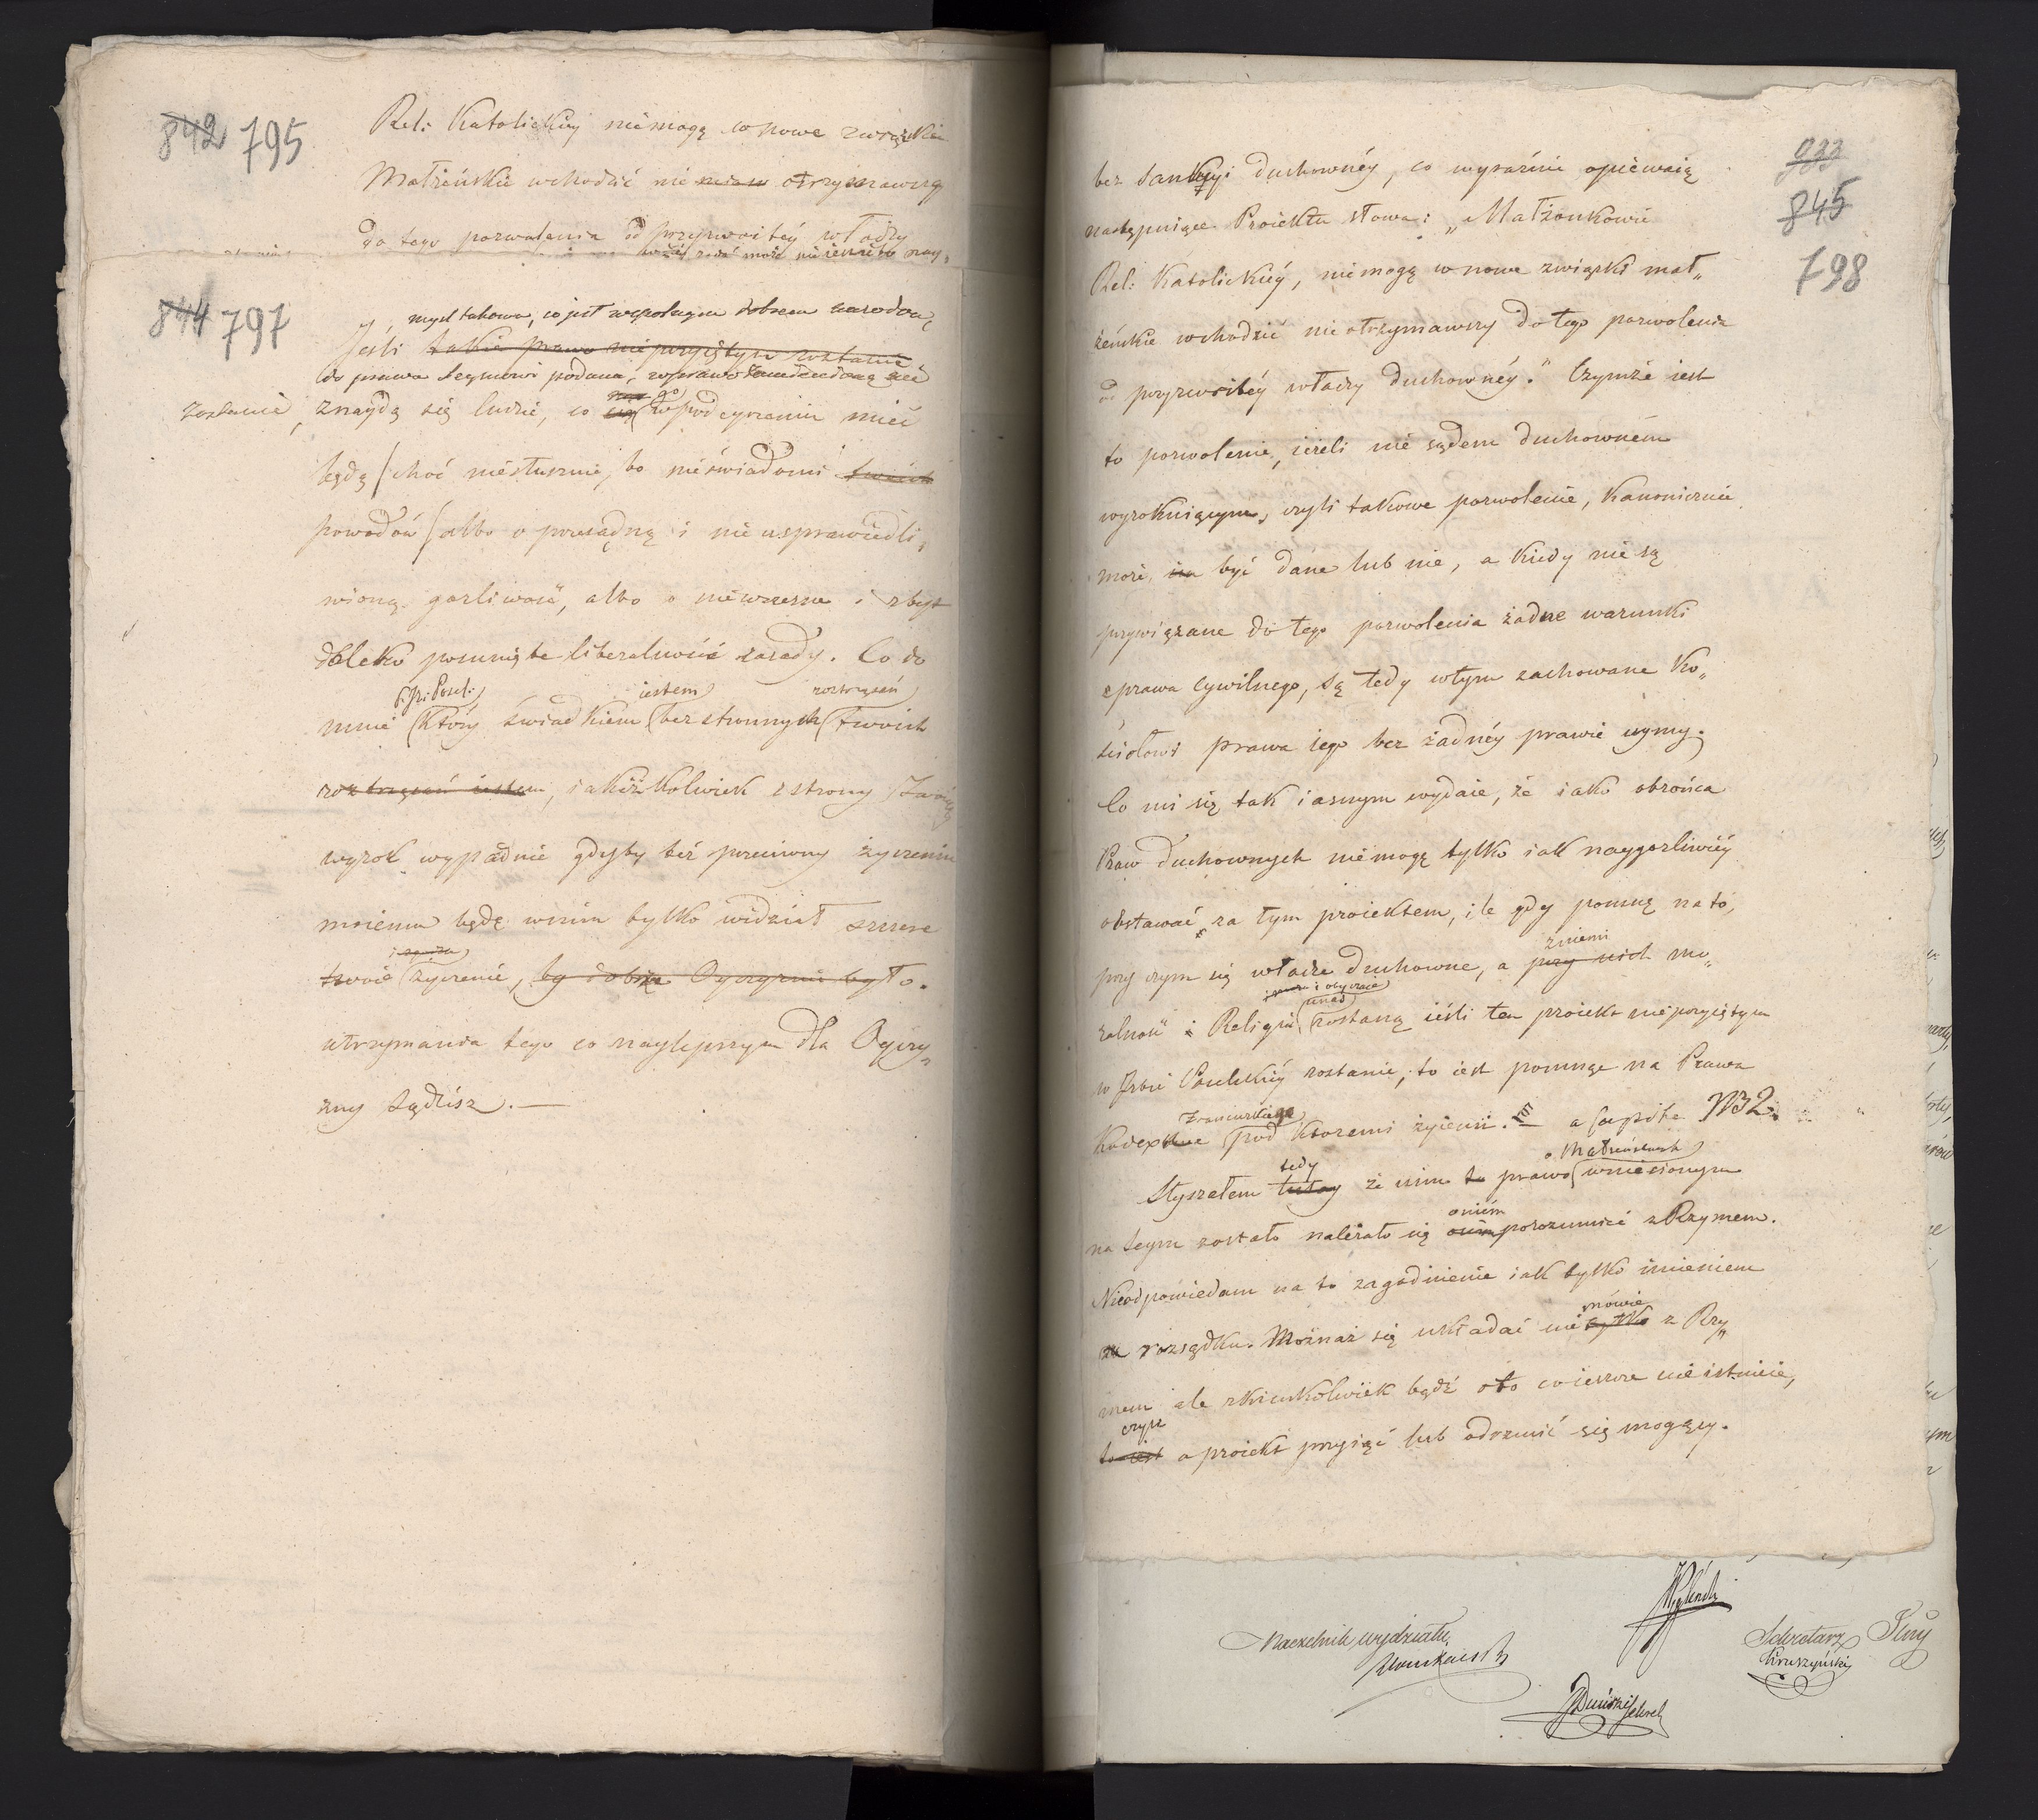 842 795
Rel: Katolickiey nie mogą w nowe związki
Małżeńskie wchodzić nie otrzymawszy
do tego pozwolenia od przyzwoitéy władzy
844 797
myśl takowa, co jest wspólnym dobrem narodowe
Jeśli takie prawo nieprzyiętym zostanie
do prawa Seymowi podana,
zostanie, znaydą się ludzie, co go w podeyrzeniu mieć
będą (choć niesłusznie, bo nieświadomi twoich
powodów) albo o przesadną i nie usprawiedli„
wioną gorliwość, albo o niewczesne i zbyt
daleko posunięte liberalności zasady. Co do
J. W. Poseł: iestem roztrząsań
mnie który świadkiem bezstronnych twoich
roztrząsań iestem, iakiżkolwiek z strony
wyrok wypadnie gdyby też przeciwny życzeniu
moiemu będę w nim tylko widział szczere
twoie życzenie, by dobrze Oyczyznie było.
utrzymania tego co naylepszym dla Oyczy„
zny sądzisz.—
933
845
798
bez Sankcyi duchownéy, co wyraźnie opiewaią
następuiące Proiektu słowa: „Małżonkowie
Rel: Katolickiéy, nie mogą w nowe związki mał„
żeńskie wchodzić nie otrzymawszy do tego pozwolenia
od przyzwoitéy władzy duchownéy." Czymże iest
to pozwolenie, ieżeli nie sądem duchowném
wyrokuiącym, czyli takowe pozwolenie, kanonicznie
może być dane lub nie, a kiedy nie są
przywiązane do tego pozwolenia żadne warunki
prawa cywilnego, są tedy w tym zachowane Ko„
ściołowi prawa iego bez żadnéy prawie uymy.
Co mi się tak iasnym wydaie, że iako obrońca
Praw duchownych nie mogę tylko iak naygorliwiéy
obstawać za tym proiektem, ile gdy pomnę na to,
z niemi
przy czym się władze duchowne, a przy nich mo„
i obyczaie
ralność i Religia zostaną ieśli ten proiekt nieprzyiętym
w Izbie Poselskiéy zostanie; to iest pomnąc na Prawa
Francuzkiego
Kodexu pod ktoremi żyiemy. — a capite N32.
tedy o Małżeństwach
Słyszałem tutay że nim to prawo wniesionym
o niém
na Seym zostało należało się porozumieć z Rzymem.
Nieodpowiedam na to zagadnienie iak tylko imieniem
mówię
rozsądku. Możnaż się układać nie tylko z Rzy„
mem ale z kimkolwiek bądź o to co ieszcze nie istnieie,
czyli
to iest o proiekt przyiąć lub odrzucić się mogący.
Naczelnik wydziału
Sekretarz Jlny
Kruszyński